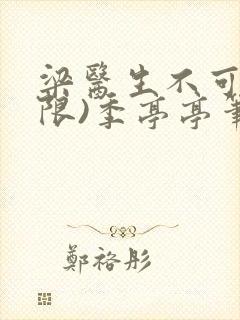 梁醫生不可
限)季亭亭筆
鄭裕彤